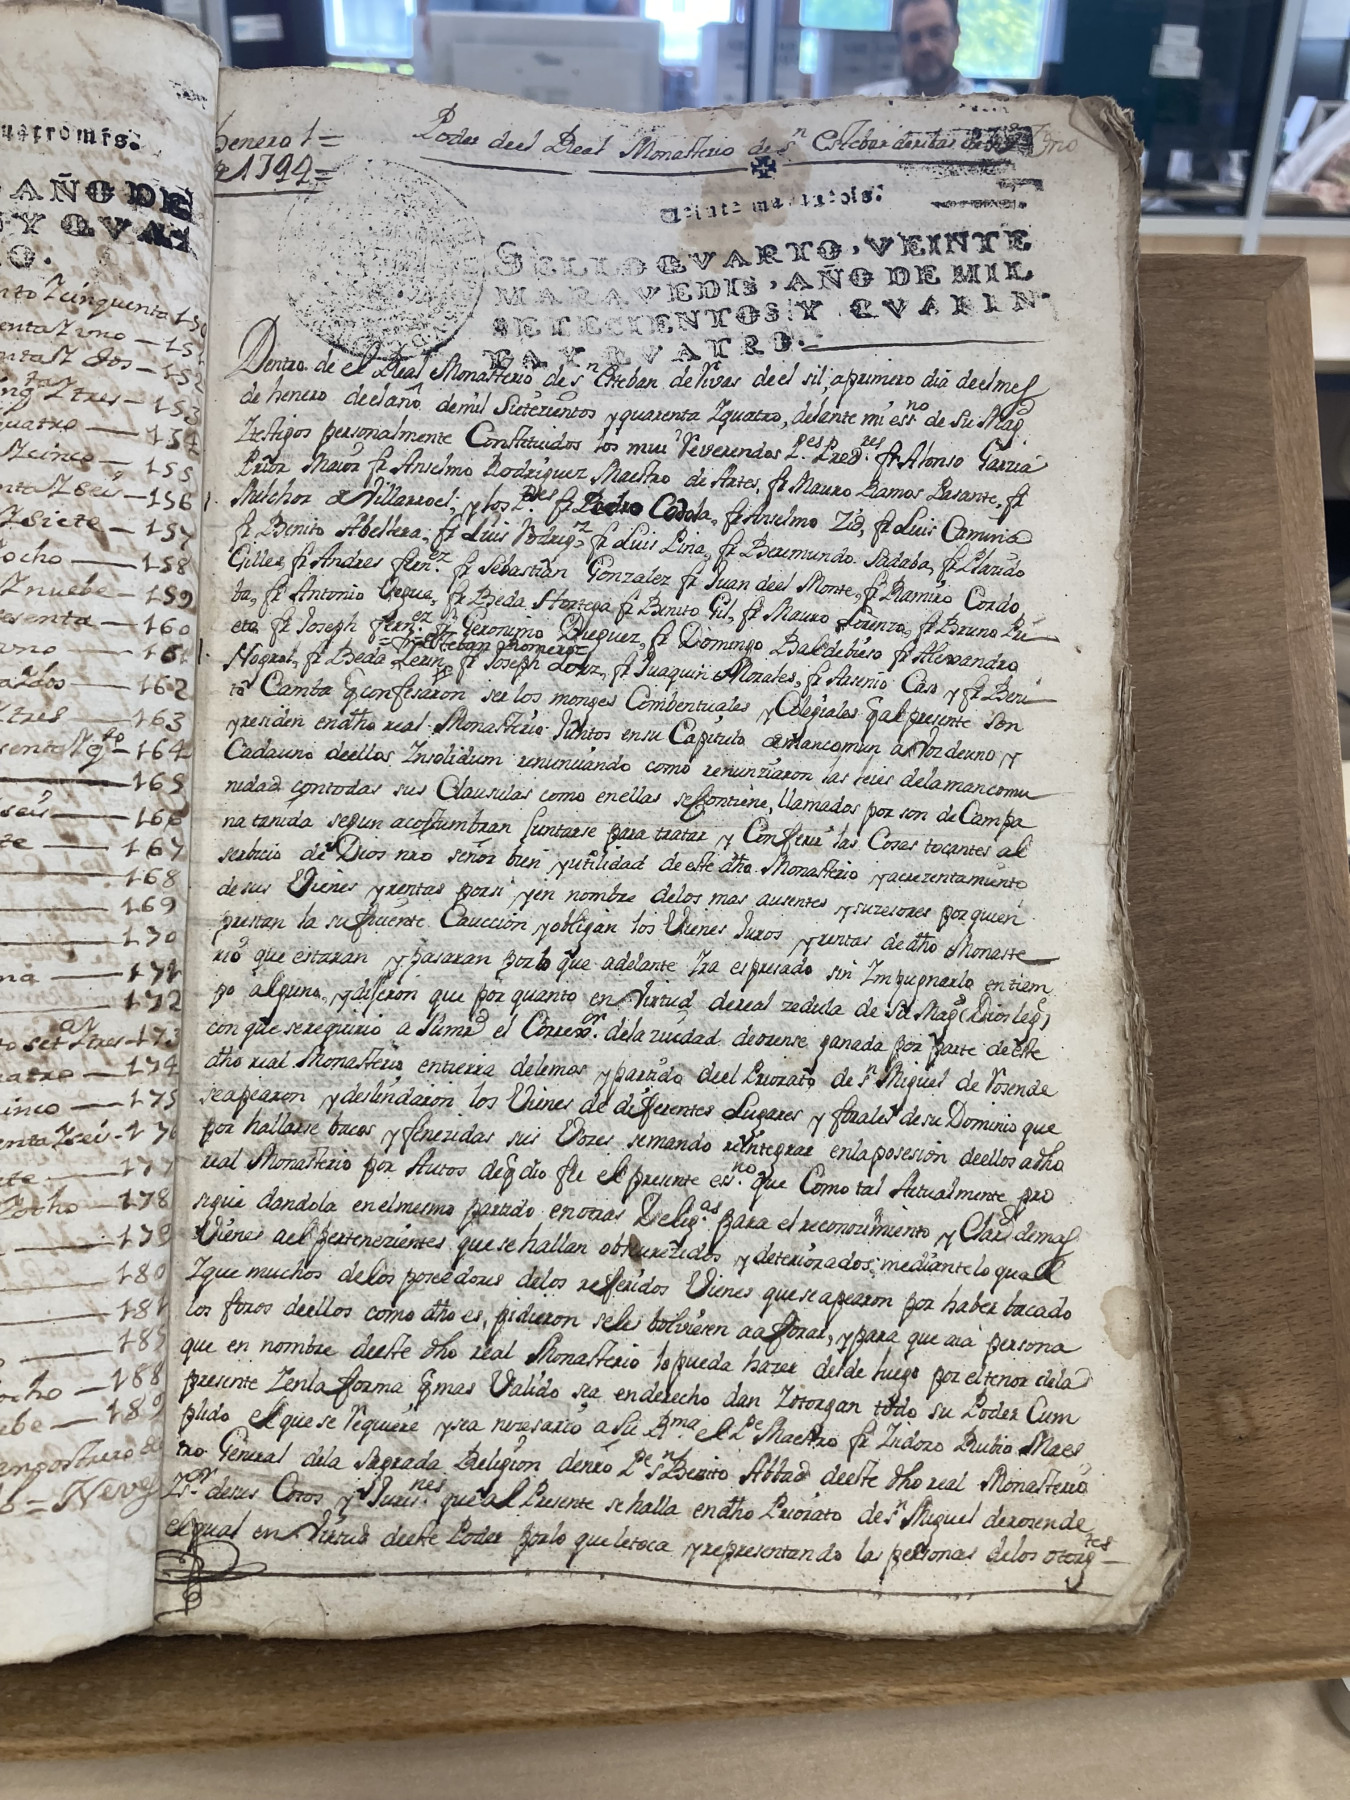 henero 1=
1744=
Poder deel Real Monasterio de Sn Esteban
Veinte maravedis.
SELLO QVARTO, VEINTE
MARAVEDIS, AÑO DE MIL
SETECIENTOS Y QVAREN
TA Y QVATRO.
Dentro de el Real Monasterio de Sn Esteban de rivas de el sil, a primero dia deel mes
de henero deel año de mil Setezientos y quarenta Zquatro, delante mi essno de Su Magd
Ztestigos personalmente Constituidos los mui Reverendos Pes Predres fr Alonso Garzia
Prior Maior fr Anselmo Rodriguez Maestro de Artes, fr Mauro Ramos Pasante, fr
Melchor de Villarroel; y los Pes fr Pedro Codola, fr Anselmo Zid, fr Luis Camiña
fr Benito Abellera, fr Luis Rodrigz fr Luis Pina, fr Beremundo Sadaba, fr Plazido
Gilles fr Andres frenz fr Sebastian Gonzalez fr Juan deel Monte, fr Ramiro Cordo
ba, fr Antonio Vegue, fr Beda Hortega fr Benito Gil, fr Mauro Lorenzo, fr Bruno
fr Joseph fernz fr Geronimo Dieguez, fr Domingo Baldebieso fr Alexandro
=fr Esteban Romero=
Nogrol, fr Beda Lerin, fr Joseph fr Juaquin Morales, fr Arsenio Caso y fr Beni
to Camba q confesaron ser los monges Combentuales y Colegiales q al presente son
y residen en dho real Monasterio Juntos en su Capitulo de mancomun a Voz de uno y
Cada uno deellos Znsolidum renunciando como renunziaron las leies de la mancomu
nidad con todas sus Clausulas como en ellas se Contiene, llamados por son de Campa
na tanida segun acostumbran Juntarse para tratar y Conferir las Cosas tocantes al
serbicio de Dios nro señor bien y utilidad de este dho Monasterio y acrezentamiento
de sus Vienes y rentas por si y en nombre de los mas ausentes y suzesores por quien
prestan la sufiziente Caucción y obligan los Vienes Juros y rentas de dho Monaste
rio que estaran y pasaran por lo que adelante Zra espresado sin Zmpugnarlo en tiem
po alguno, y dijeron que por quanto en Virtud de real zedula de Su Magd (Dios leg)
con que se requirio a Su mrd el Correxor de la ziudad de orense ganada por parte de este
dho real Monasterio en tierra de lemos y partido deel Priorato de Sn Miguel de rosende
se apearon y deslindaron los Vienes de diferentes Lugares y forales de su Dominio que
por hallarse bacos y fenezidas sus Vozes se mando reintegrar en la posesion deellos a dho
real Monasterio por Autos de q dio fe el presente essno que Como tal Actualmente pro
sigue dandola en el mesmo partido en otras Delixas para el reconozimiento y Clarid de mas
Vienes a el pertenezientes que se hallan obscurezidos y deteriorados; mediante lo qual
Zque muchos de los poseedores de los referidos Vienes que se apearon por haber bacado
los foros deellos como dho es, pidieron se les bolviesen a aforar, y para que aia persona
que en nombre deeste dho real Monasterio lo pueda hazer desde luego por el tenor de la
presente Zen la forma q mas Valido sea en derecho dan Zotorgan todo su Poder Cum
plido el que se requiere y sea nezesario a Su Rma el Pe Maestro fr Zsidoro Rubio Maes
tro General de la Sagrada Religion de nro Pe Sn Benito Abbad deeste dho real Monasterio
Zsor de sus Cotos y Jurisnes que al Presente se halla en dho Priorato de Sn Miguel de rosende
el qual en Virtud deeste Poder por lo que le toca y representando las personas de los otorgtes
AÑO DE
Y QVA
O.
nto Zcinquenta 150
enta Z uno — 151
enta Z dos — 152
Z tres — 153
quatro — 154
Z cinco — 155
nta Z seis — 156
Z siete — 157
ocho — 158
Z nuebe — 159
esenta — 160
uno — 161
Z dos — 162
Z tres — 163
senta Y qto — 164
— 165
seis — 166
te — 167
— 168
— 169
— 170
— 171
— 172
Z tres — 173
uatro — 174
inco — 175
enta Z seis — 176
ete — 177
Z ocho — 178
— 179
— 180
— 181
— 185
ocho — 188
ebe — 189